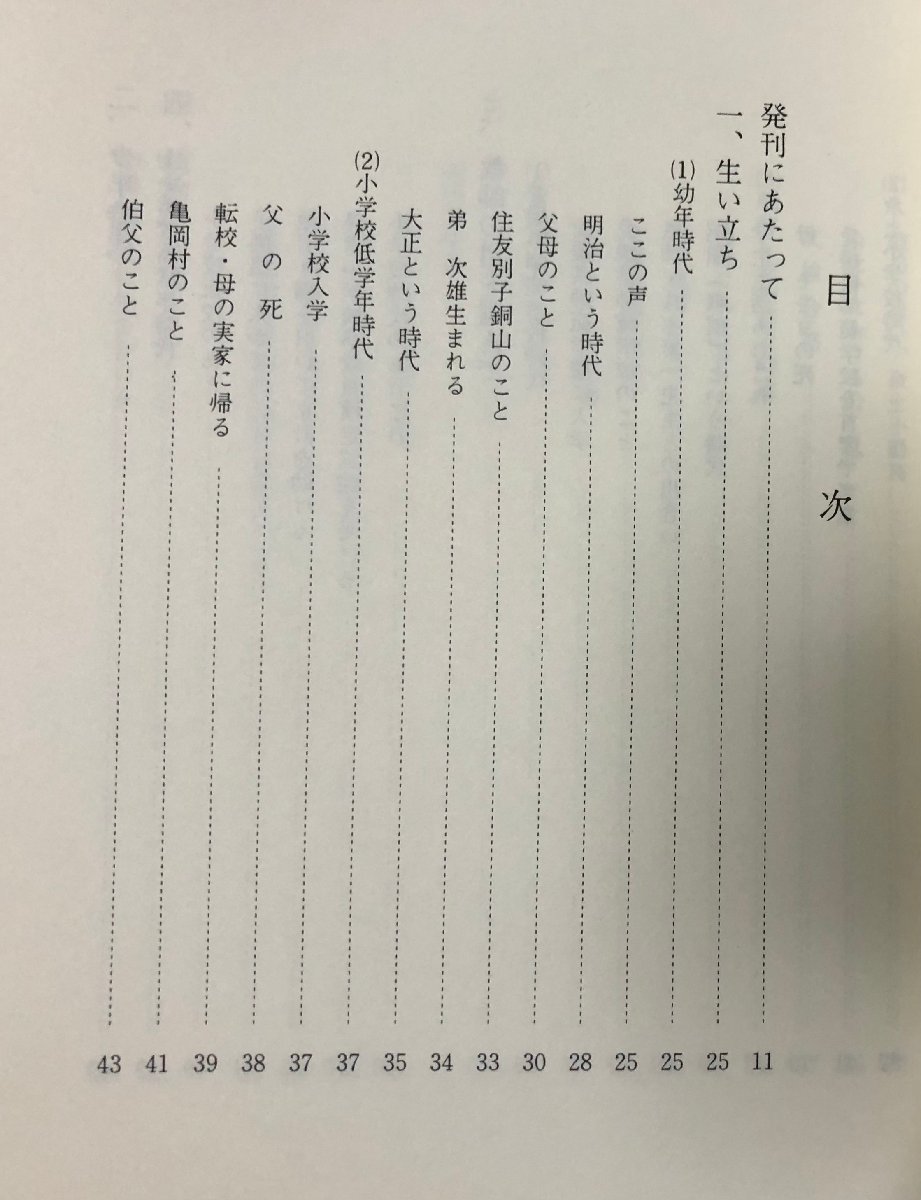 目次
発刊にあたって 11
一、生い立ち 25
(1)幼年時代 25
ここの声 25
明治という時代 28
父母のこと 30
住友別子銅山のこと 33
弟 次雄生まれる 34
大正という時代 35
(2)小学校低学年時代 37
小学校入学 37
父の死 38
転校・母の実家に帰る 39
亀岡村のこと 41
伯父のこと 43